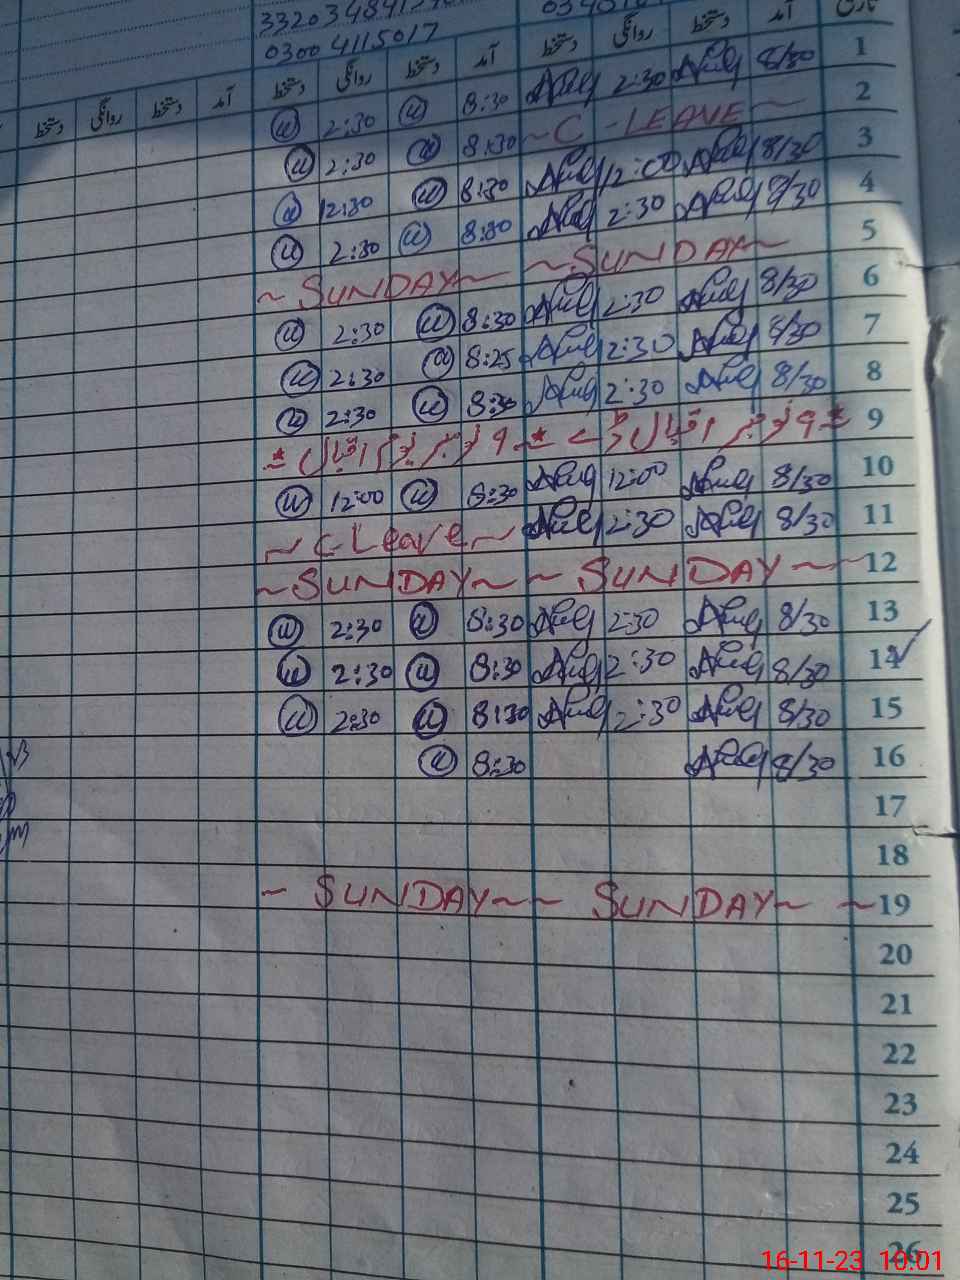 0300 4115017
تاریخ آمد دستخط روانگی دستخط آمد دستخط روانگی دستخط آمد دستخط روانگی دستخط
2:30 8:30 2:30 8/30 1
2:30 8:30 ~ C - LEAVE ~ 2
12:30 8:30 12:00 8/30 3
2:30 8:30 2:30 8/30 4
~ SUNDAY ~ ~ SUNDAY ~ 5
2:30 8:30 2:30 8/30 6
2:30 8:25 2:30 8/30 7
2:30 8:30 2:30 8/30 8
9 ۹ نومبر اقبال ڈے ۹ نومبر یوم اقبال
12:00 8:30 12:00 8/30 10
~ C-Leave ~ 2:30 8/30 11
~ SUNDAY ~ ~ SUNDAY ~ 12
2:30 8:30 2:30 8/30 13
2:30 8:30 2:30 8/30 14
2:30 8:30 2:30 8/30 15
8:30 8/30 16
17
18
~ SUNDAY ~ ~ SUNDAY ~ ~ 19
20
21
22
23
24
25
26
16-11-23 10:01